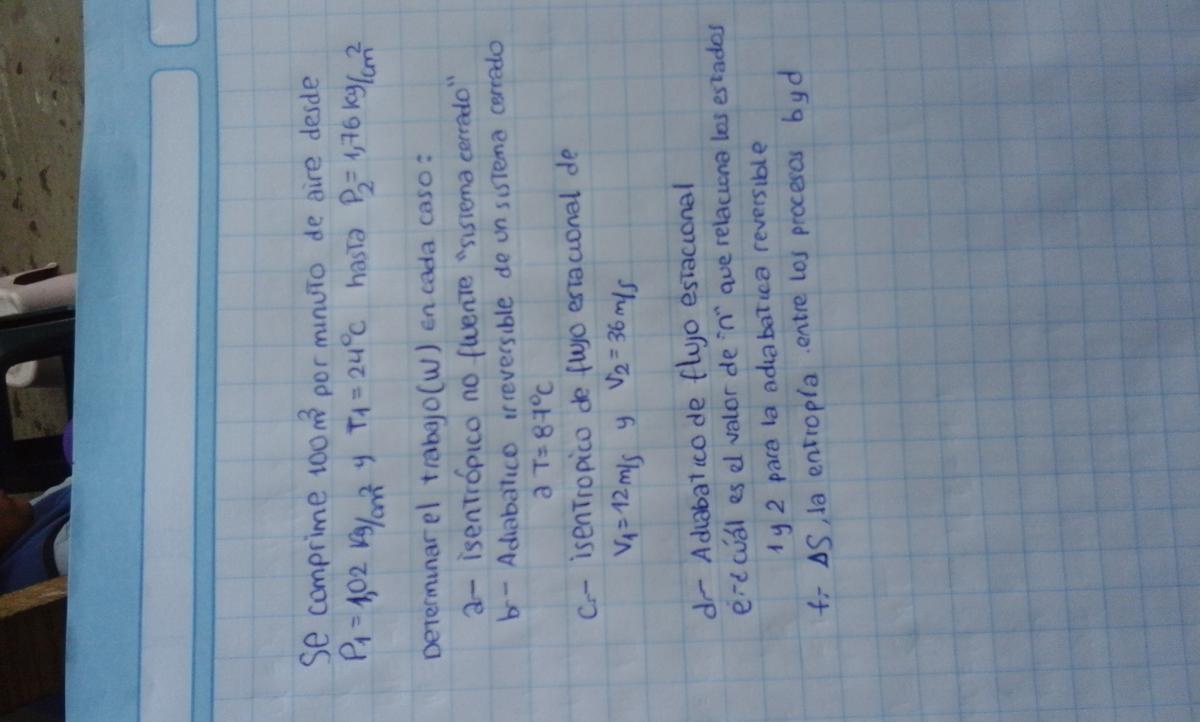 Se comprime 100 m³ por minuto de aire desde
P₁ = 1,02 kg/cm² y T₁ = 24°C hasta P₂ = 1,76 kg/cm²
Determinar el trabajo (W) en cada caso:
a.- isentrópico no fluente "sistema cerrado"
b.- Adiabatico irreversible de un sistema cerrado
a T = 87°C
c.- isentropico de flujo estacional de
V₁ = 12 m/s y V₂ = 36 m/s
d.- Adiabatico de flujo estacional
e.- ¿cuál es el valor de "n" que relaciona los estados
1 y 2 para la adiabatica reversible
f.- ΔS, la entropía .entre los procesos b y d